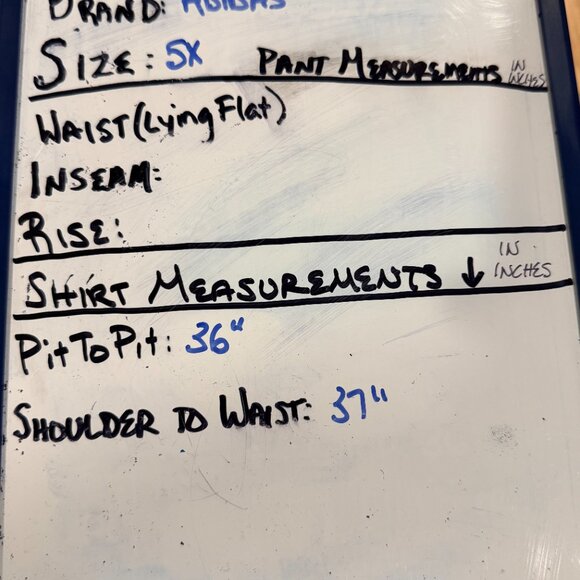 BRAND: ADIDAS
SIZE: 5X PANT MEASUREMENTS IN INCHES
WAIST (Lying Flat)
INSEAM:
RISE:
SHIRT MEASUREMENTS ↓ IN INCHES
PitToPit: 36"
SHOULDER TO WAIST: 37"